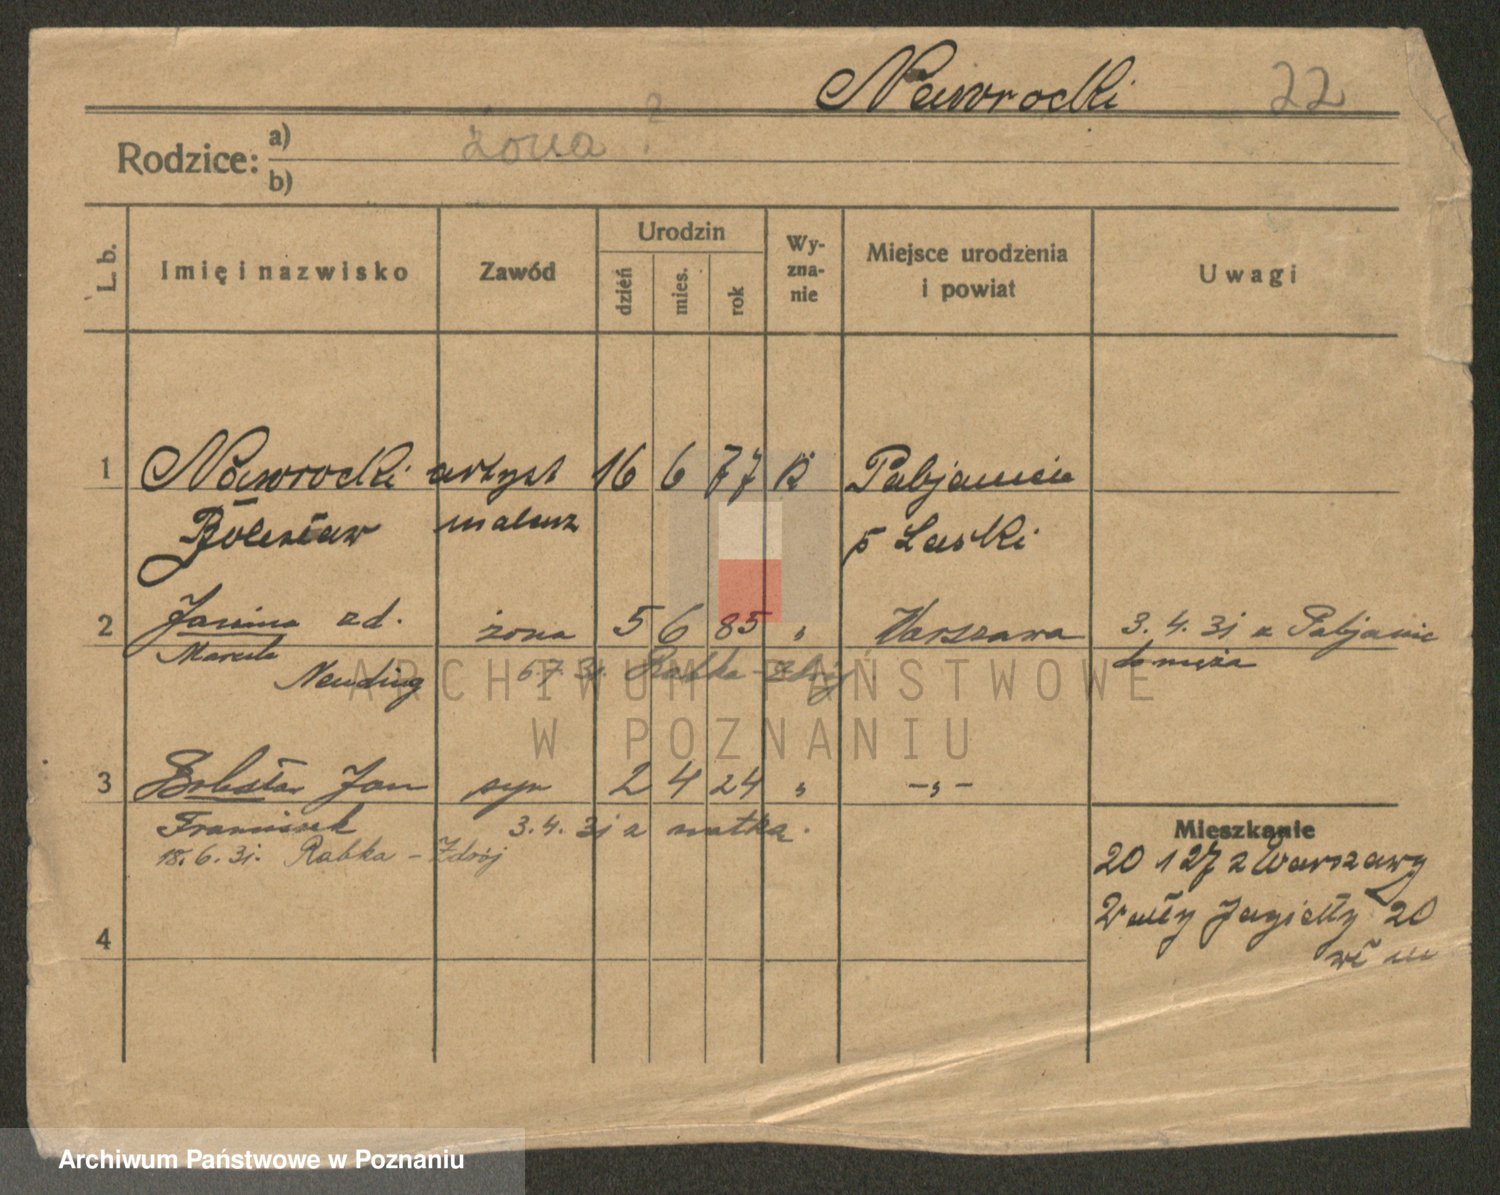 Nawrocki 22
żona ?
Rodzice: a)
b)
L. b. Imię i nazwisko Zawód Urodzin dzień mies. rok Wy-zna-nie Miejsce urodzenia i powiat Uwagi
1 Nawrocki artyst 16 6 77 k Pabjanice
Bolesław malarz p Łaski
2 Janina zd. żona 5 6 85 " Warszawa 3. 4. 31 z Pabjanic
Marcela do męża
Neuding 6.7.31. Rabka-Zdrój
ARCHIWUM PAŃSTWOWE
W POZNANIU
3 Bolesław Jan syn 2 4 24 " -„-
Franciszek 3. 4. 31 z matką.
18. 6. 31. Rabka - Zdrój
4
Mieszkanie
20 1 27 z Warszawy
Wały Jagiełły 20
Archiwum Państwowe w Poznaniu